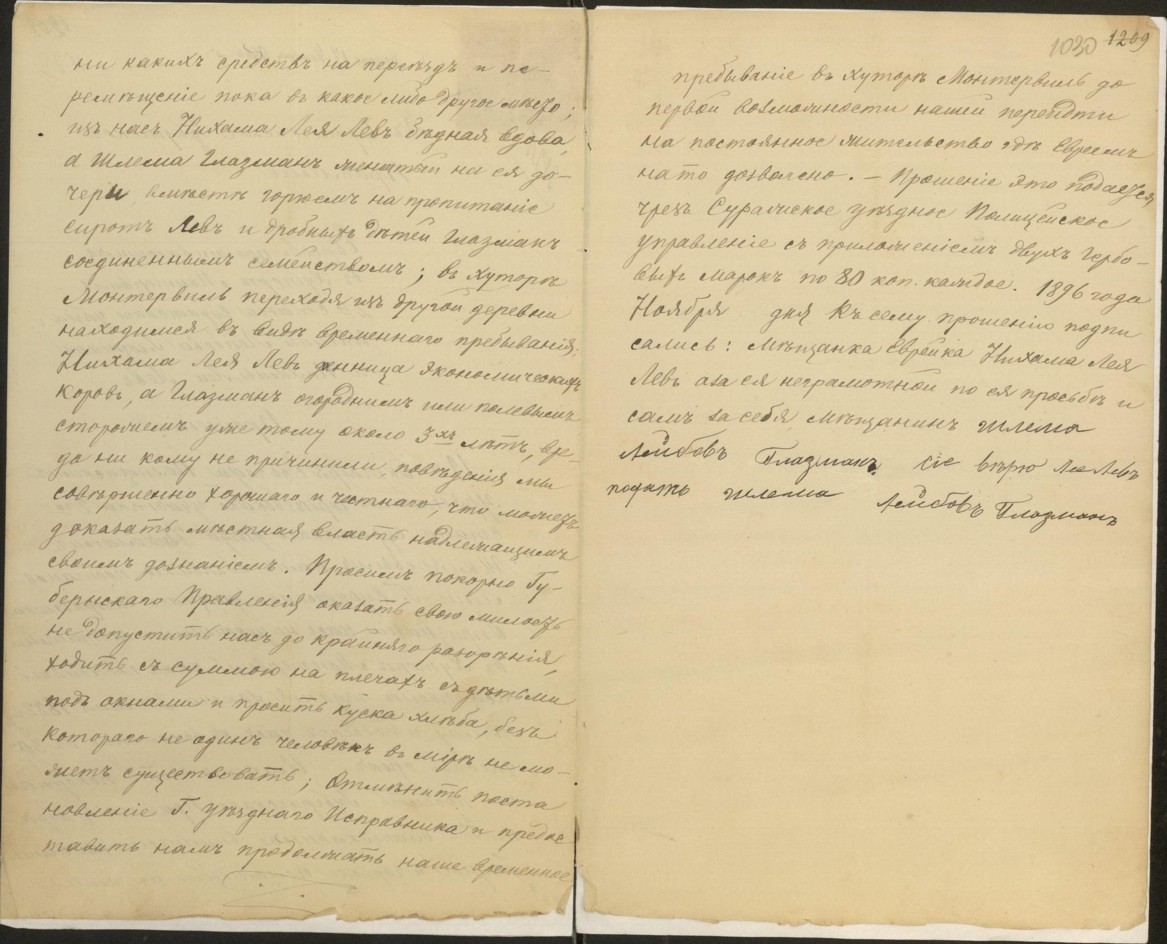 ни какихъ средствъ на переѣздъ и пе-
ремѣщеніе пока въ какое либо другое мѣсто;
изъ насъ Нихама Лея Левъ бѣдная вдова,
а Шлема Глазманъ женатый на ея до-
чери вмѣстѣ горюемъ на пропитаніе
сиротъ Левъ и дробныхъ дѣтей Глазманъ
соединеннымъ семействомъ; въ хуторѣ
Монтервиль переходя изъ другой деревни
находимся въ видѣ временнаго пребыванія;
Нихама Лея Левъ экономическихъ
коровъ, а Глазманъ огороднимъ или полевымъ
сторожемъ уже тому около 3хъ лѣтъ, вре-
да ни кому не причинили, повѣденія мы
совѣршенно хорошаго и честнаго, что можетъ
доказать мѣстная власть надлежащимъ
своимъ дознаніемъ. Просимъ покорно Гу-
бернскаго Правленія оказать свою милость
не допустить насъ до крайняго разорѣнія,
ходить съ суммою на плечахъ съ дѣтьми
подъ окнами и просить куска хлѣба, безъ
котораго не одинъ человѣкъ въ мірѣ не мо-
жетъ существовать; Отмѣнить поста
новленіе Г. уѣзднаго Исправника и предос
тавить намъ продолжать наше временное
1030 1209
пребываніе въ хуторѣ Монтервиль до
первой возможности нашей перейдти
на постоянное жительство гдѣ Евреемъ
на то дозволено. — Прошеніе это подается
чрезъ Суражское уѣздное Полицейское
управленіе съ приложеніемъ двухъ гербо-
выхъ марокъ по 80 коп. каждое. 1896 года
Ноября дня Къ сему прошенію подпи
сались: мѣщанка еврейка Нихама Лея
Левъ аза ея неграмотной по ея просьбѣ и
самъ за себя мѣщанинъ Шлема
Лейбовъ Глазманъ. сіе вѣрю Лее Левъ
подать Шлема Лейбовъ Глазманъ